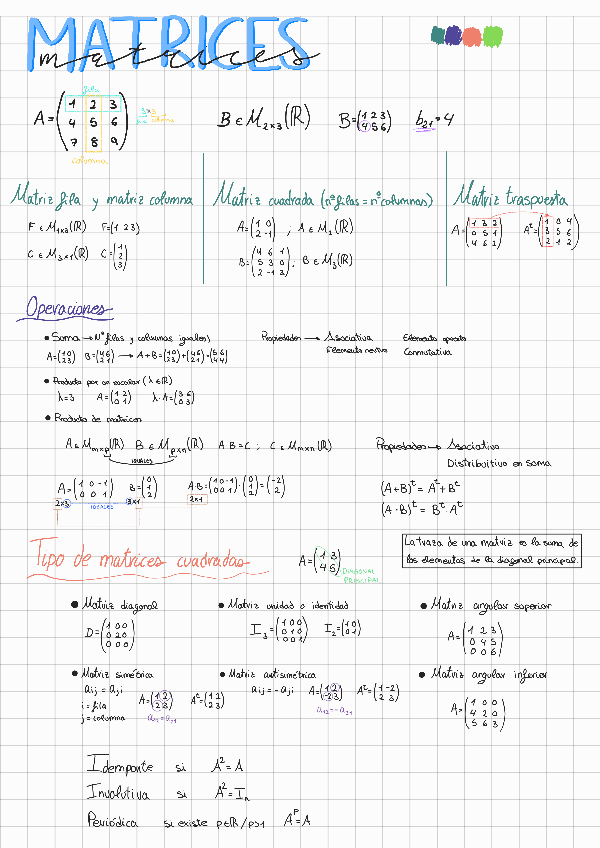 MATRICES
matrices
fila
A=(1 2 3
4 5 6
7 8 9)
3x3
columna
B ∈ M₂ₓ₃(ℝ) B=(1 2 3
4 5 6) b₂₁=4
Matriz fila y matriz columna
F ∈ M₁ₓ₃(ℝ) F=(1 2 3)
C ∈ M₃ₓ₁(ℝ) C=(1
2
3)
Matriz cuadrada (nº filas = nº columnas)
A=(1 0
2 -1) ; A ∈ M₂(ℝ)
B=(4 6 1
5 3 0
2 -1 3) ; B ∈ M₃(ℝ)
Matriz traspuesta
A=(1 3 2
0 5 1
4 6 2) Aᵗ=(1 0 4
3 5 6
2 1 2)
Operaciones
• Suma → Nº filas y columnas iguales)
A=(1 0
2 3) B=(4 6
2 1) → A+B=(1 0
2 3)+(4 6
2 1)=(5 6
4 4)
Propiedades → Asociativa Elemento opuesto
Elemento neutro Conmutativa
• Producto por un escalar (λ ∈ ℝ)
λ=3 A=(1 2
0 1) λ·A=(3 6
0 3)
• Producto de matrices
A ∈ Mₘₓₚ(ℝ) B ∈ Mₚₓₙ(ℝ) A·B=C ; C ∈ Mₘₓₙ(ℝ)
IGUALES
A=(1 0 -1
0 0 1) B=(0
1
2) A·B=(1 0 -1
0 0 1)·(0
1
2)=(-2
2)
2x3 3x1 2x1
IGUALES
Propiedades → Asociativa
Distribuitivo en suma
(A+B)ᵗ = Aᵗ+Bᵗ
(A·B)ᵗ = Bᵗ·Aᵗ
Tipo de matrices cuadradas
A=(1 3
4 5)
DIAGONAL
PRINCIPAL
La traza de una matriz es la suma de
los elementos de la diagonal principal.
• Matriz diagonal
D=(1 0 0
0 2 0
0 0 0)
• Matriz unidad o identidad
I₃=(1 0 0
0 1 0
0 0 1) I₂=(1 0
0 1)
• Matriz angular superior
A=(1 2 3
0 4 5
0 0 6)
• Matriz simétrica
aij = aji
i = fila
j = columna
A=(1 2
2 3) Aᵗ=(1 2
2 3)
a₁₂=a₂₁
• Matriz antisimétrica
aij = -aji A=(1 2
-2 3) Aᵗ=(1 -2
2 3)
a₁₂=-a₂₁
• Matriz angular inferior
A=(1 0 0
4 2 0
5 6 3)
Idemponte si A²=A
Involutiva si A²=Iₙ
Periódica si existe p∈ℝ/p>1 Aᵖ=A